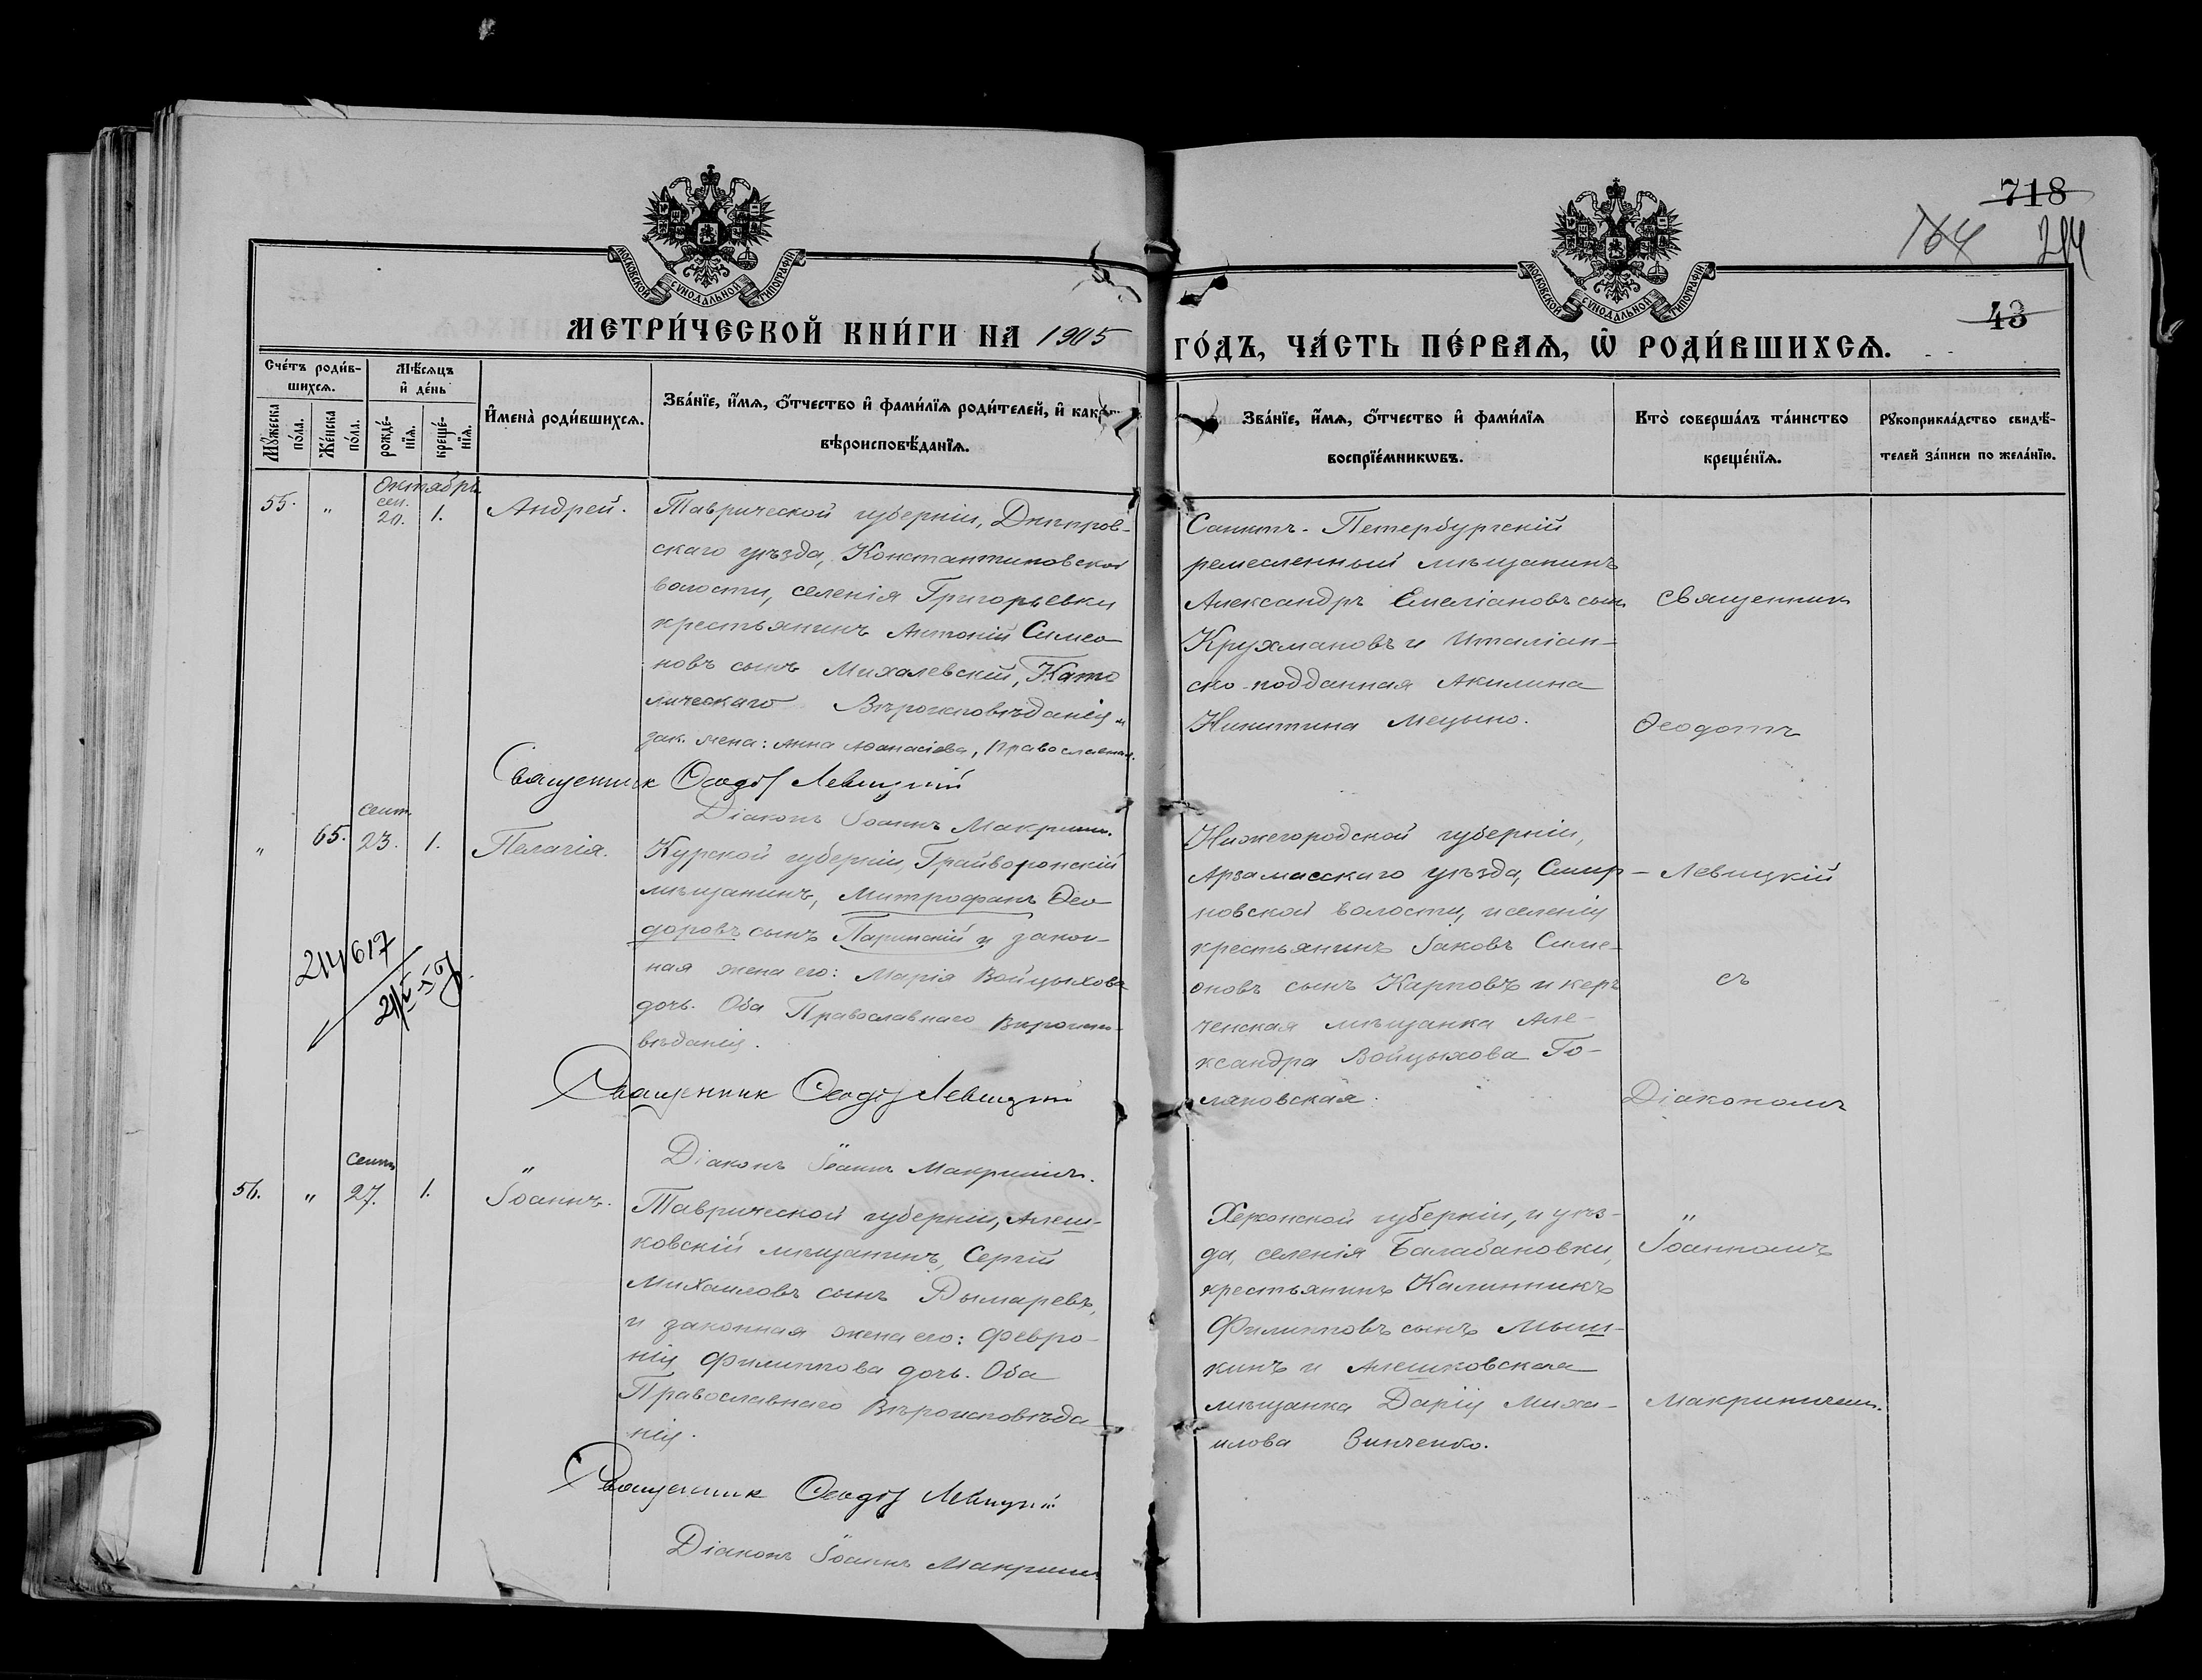 718
164 214
43
МОСКОВСКОЙ СѴНОДАЛЬНОЙ ТИПОГРАФІИ
МОСКОВСКОЙ СѴНОДАЛЬНОЙ ТИПОГРАФІИ
МЕТРИ́ЧЕСКОЙ КНИ́ГИ НА 1905 ГО́ДЪ, ЧА́СТЬ ПЕ́РВАѦ, Ѡ҆ РОДИ́ВШИХСѦ.
Сче́тъ роди́в-
шихсѧ.
Мꙋ́жеска по́ла.
Же́нска по́ла.
Мѣ́сѧцъ и҆ де́нь
рожде́-нїѧ.
креще́-нїѧ.
И҆мена̀ роди́вшихсѧ.
Зва́нїе, и҆́мѧ, о҆́тчество и҆ фами́лїѧ роди́телей, и҆ како́гѡ
вѣроисповѣ́данїѧ.
Зва́нїе, и҆́мѧ, о҆́тчество и҆ фами́лїѧ
воспрїе́мникѡвъ.
Кто̀ соверша́лъ та́инство
креще́нїѧ.
Рꙋкоприкла́дство свидѣ́-
телей за́писи по жела́нїю.
Октябрь
55. " сен. 20. 1. Андрей.
Таврической губерніи, Днѣпров-
скаго уѣзда, Константиновской
волости, селенія Григорьевки
крестьянинъ Антоній Симео-
новъ сынъ Михалевскій, Като
лическаго Вѣроисповѣданія и
зак. жена: Анна Аѳанасіева, Православная.
Священник Ѳеодот Левицкій
Діаконъ Іоаннъ Макринич.
Санктъ-Петербургскій
ремесленный мѣщанинъ
Александръ Емеліановъ сын
Крухмановъ и Италіан-
ско-подданная Акилина
Никитина Мецыно.
священник
Ѳеодотъ
" 65. сент. 23. 1. Пелагія.
Курской губерніи, Грайворонскій
мѣщанинъ, Митрофанъ Ѳео
доровъ сынъ Паринскій и закон-
ная жена его: Марія Войцыхова
дочь. Оба Православнаго Вѣроиспо-
вѣданія.
214617
Священник Ѳеодот Левицкій
Діаконъ Іоаннъ Макриничъ.
Нижегородской губерніи,
Арзамасскаго уѣзда, Смир-
новской волости, и селенія
крестьянинъ Іаковъ Симе-
оновъ сынъ Карповъ и кер
ченская мѣщанка Але-
ксандра Войцыхова Го-
ляковская.
Левицкій
съ
Діакономъ
56. " сент. 27. 1. Іоаннъ.
Таврической губерніи, Алеш-
ковскій мѣщанинъ, Сергій
Михаиловъ сынъ Дымаревъ,
и законная жена его: Февро-
нія Филиппова дочь. Оба
Православнаго Вѣроисповѣда
нія.
Священник Ѳеодот Левицкій
Діаконъ Іоаннъ Макринич
Херсонской губерніи, и уѣз-
да, селенія Балабановки,
крестьянинъ Калинникъ
Филипповъ сынъ Мыш-
кинъ и Алешковская
мѣщанка Дарія Миха-
илова Зинченко.
Іоанномъ
Макриничем.